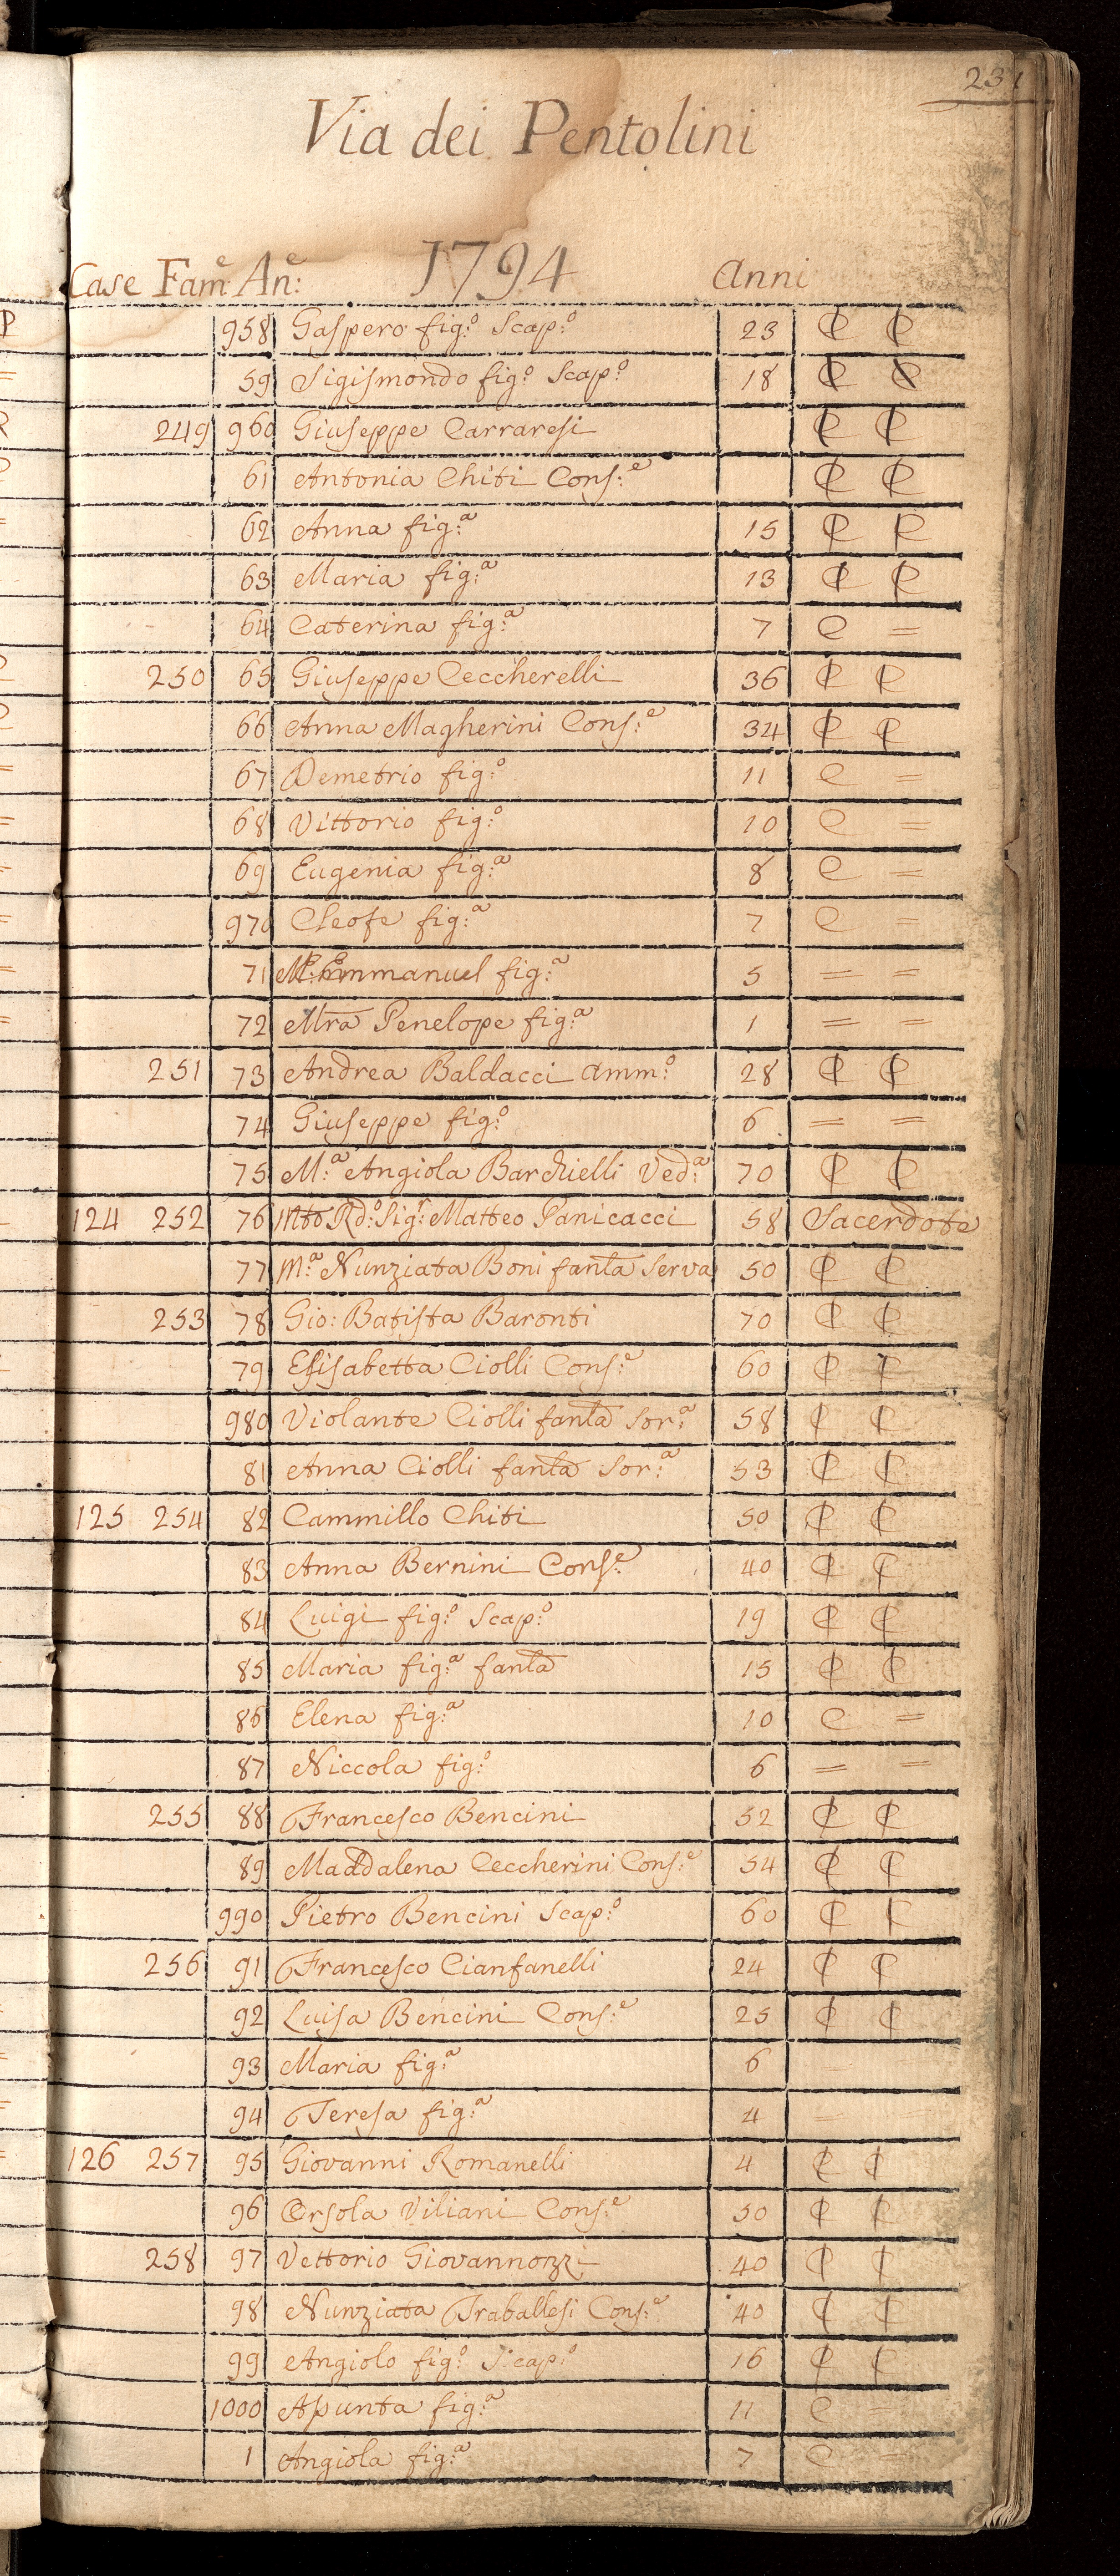 231
Via dei Pentolini
1794
Case Fam:e An:e Anni
958 Gaspero fig:o Scap:o 23 C C
59 Sigismondo fig:o Scap:o 18 C C
249 960 Giuseppe Carraresi C C
61 Antonia Chiti Cons:e C C
62 Anna fig:a 15 C C
63 Maria fig:a 13 C C
64 Caterina fig:a 7 C =
250 65 Giuseppe Ceccherelli 36 C C
66 Anna Magherini Cons:e 34 C C
67 Demetrio fig:o 11 C =
68 Vittorio fig:o 10 C =
69 Eugenia fig:a 8 C =
970 Cleofe fig:a 7 C =
71 Emmanuel fig:a 5 = =
72 Mra Penelope fig:a 1 = =
251 73 Andrea Baldacci Amm:o 28 C C
74 Giuseppe fig:o 6 = =
75 M:a Angiola Barchielli Ved:a 70 C C
124 252 76 Mto Rd:o Sig:r Matteo Panicacci 58 Sacerdote
77 M:a Nunziata Boni fanla Serva 50 C C
253 78 Gio: Batista Baronti 70 C C
79 Elisabetta Ciolli Cons:e 60 C C
980 Violante Ciolli fanla Sor:a 58 C C
81 Anna Ciolli fanla Sor:a 53 C C
125 254 82 Cammillo Chiti 50 C C
83 Anna Bernini Cons:e 40 C C
84 Luigi fig:o Scap:o 19 C C
85 Maria fig:a fanla 15 C C
86 Elena fig:a 10 C =
87 Niccola fig:o 6 = =
255 88 Francesco Bencini 52 C C
89 Maddalena Ceccherini Cons:e 54 C C
990 Pietro Bencini Scap:o 60 C C
256 91 Francesco Cianfanelli 24 C C
92 Luisa Bencini Cons:e 25 C C
93 Maria fig:a 6 = =
94 Teresa fig:a 4 = =
126 257 95 Giovanni Romanelli 4 C C
96 Orsola Viliani Cons:e 50 C C
258 97 Vettorio Giovannozzi 40 C C
98 Nunziata Traballesi Cons:e 40 C C
99 Angiolo fig:o Scap:o 16 C C
1000 Asunta fig:a 11 C =
1 Angiola fig:a 7 C =